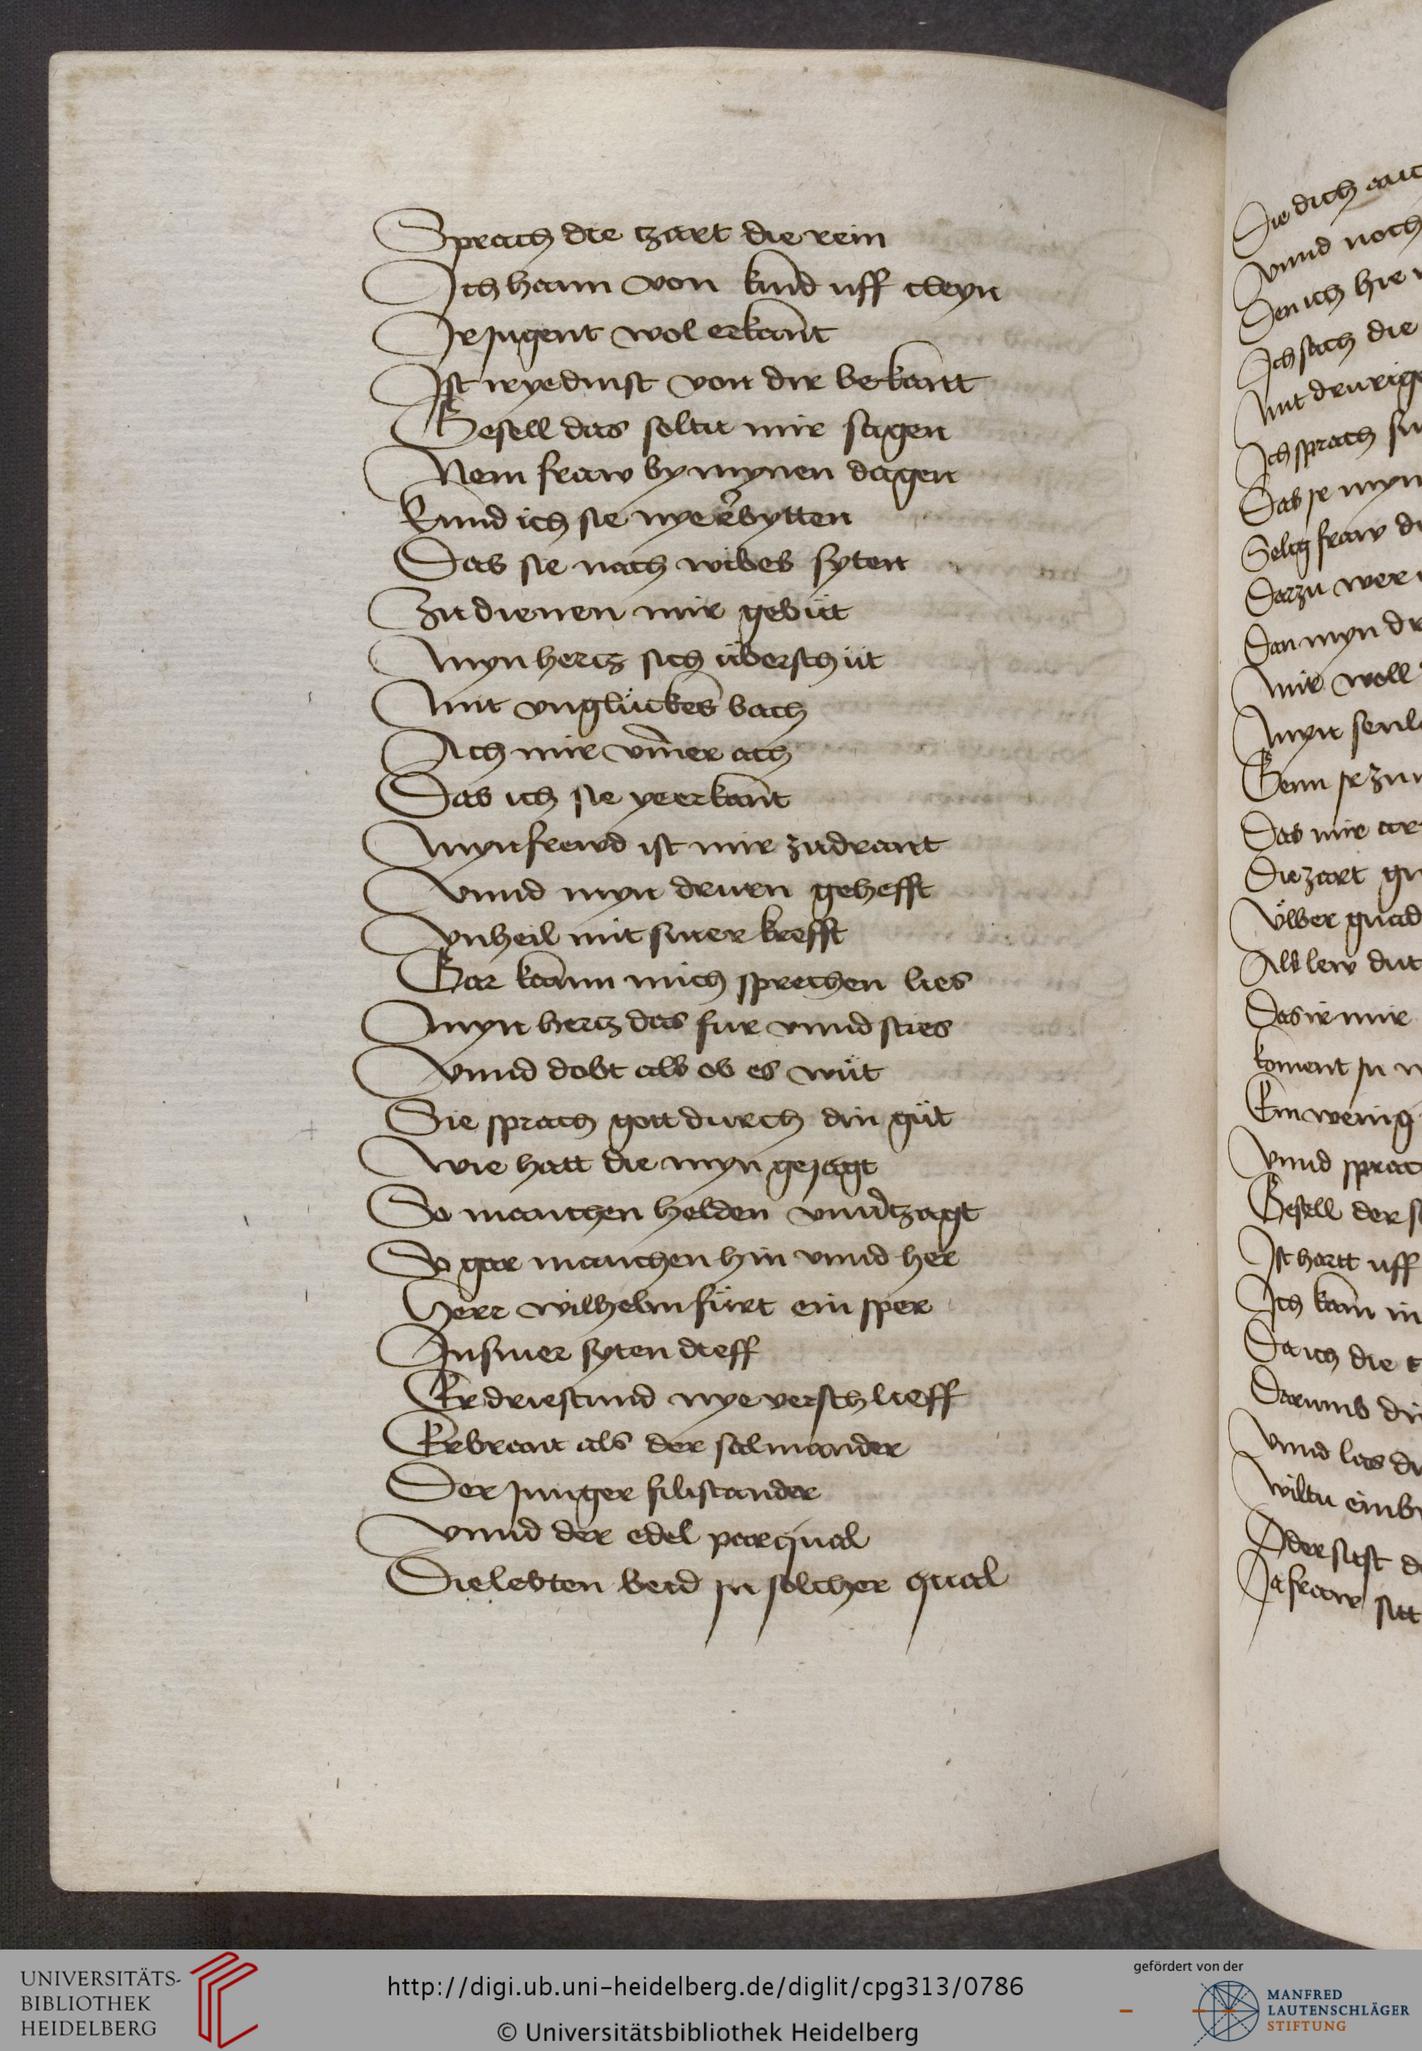 Sprach die tzart die rein
Ich hann von kind uff cleyn
Ir jugent wol erkant
Ist nye dinst von dir bekantt
Gesell das soltu mir sagen
Nein fraw by mynen dagen
Kund ich sie nye erbytten
Das sie nach wibes syten
Zu dienen mir gebüt
Myn hertz sich überschüt
Mit vnglückes bach
Ach mir vmer ach
Das ich sie ye erkant
Myn frewd ist mir zudrant
Vnnd myn druren gehefft
Vnheil mit siner krefft
Gar kaum mich sprechen lies
Myn hertz das fur vnnd sties
Vnnd dobt als ob es wüt
Sie sprach gott durch din güt
Wie hatt die myn gejagt
So manchen helden vnuertzagt
So gar manchen hin vnnd her
Herr wilhelm fürt ein sper
In siner syten dieff
Er driestund nye verschlieff
Er brant als der salmander
Der junger filistander
Vnnd der edel parqual
Die lebten beid jn solcher qual
Die dich
Vnnd noch
Den ich hie
Ich sach die
Mit drurige
Ich sprach
Das je myn
Selig fraw
Darzu wer
Dan myn
Mir woll
Myn
Das mir
Die zart
Über gnad
Das ir mir
koment jn
Ein wenig
Vnnd sprac
Gesell der
Ist hartt uff
Ich kam in
Da ich die
Darumb
Vnnd las
Wiltu
Oder
Ja fraw
UNIVERSITÄTS-
BIBLIOTHEK
HEIDELBERG
http://digi.ub.uni-heidelberg.de/diglit/cpg313/0786
© Universitätsbibliothek Heidelberg
gefördert von der
MANFRED
LAUTENSCHLÄGER
STIFTUNG